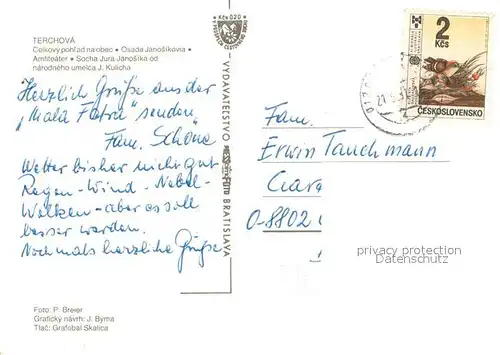 TERCHOVÁ
Celkový pohľad na obec • Osada Jánošíkovia •
Amfiteáter • Socha Jura Jánošíka od
národného umelca J. Kulicha
Kčs 0,20
Herzlich Grüße aus der
"Malá Fatra" senden
Fam. Schöne
Wetter bisher nicht gut
Regen - Wind - Nebel -
Wolken - aber es soll
besser werden.
Nochmals herzliche Grüße
Foto: P. Breier
Grafický návrh: J. Býrna
Tlač: Grafobal Skalica
VYDAVATEĽSTVO
BRATISLAVA
2
Kčs
ČESKOSLOVENSKO
Fam.
Erwin Tauchmann
Cara
O-8802
privacy protection
www.ansichtskarten-center.de